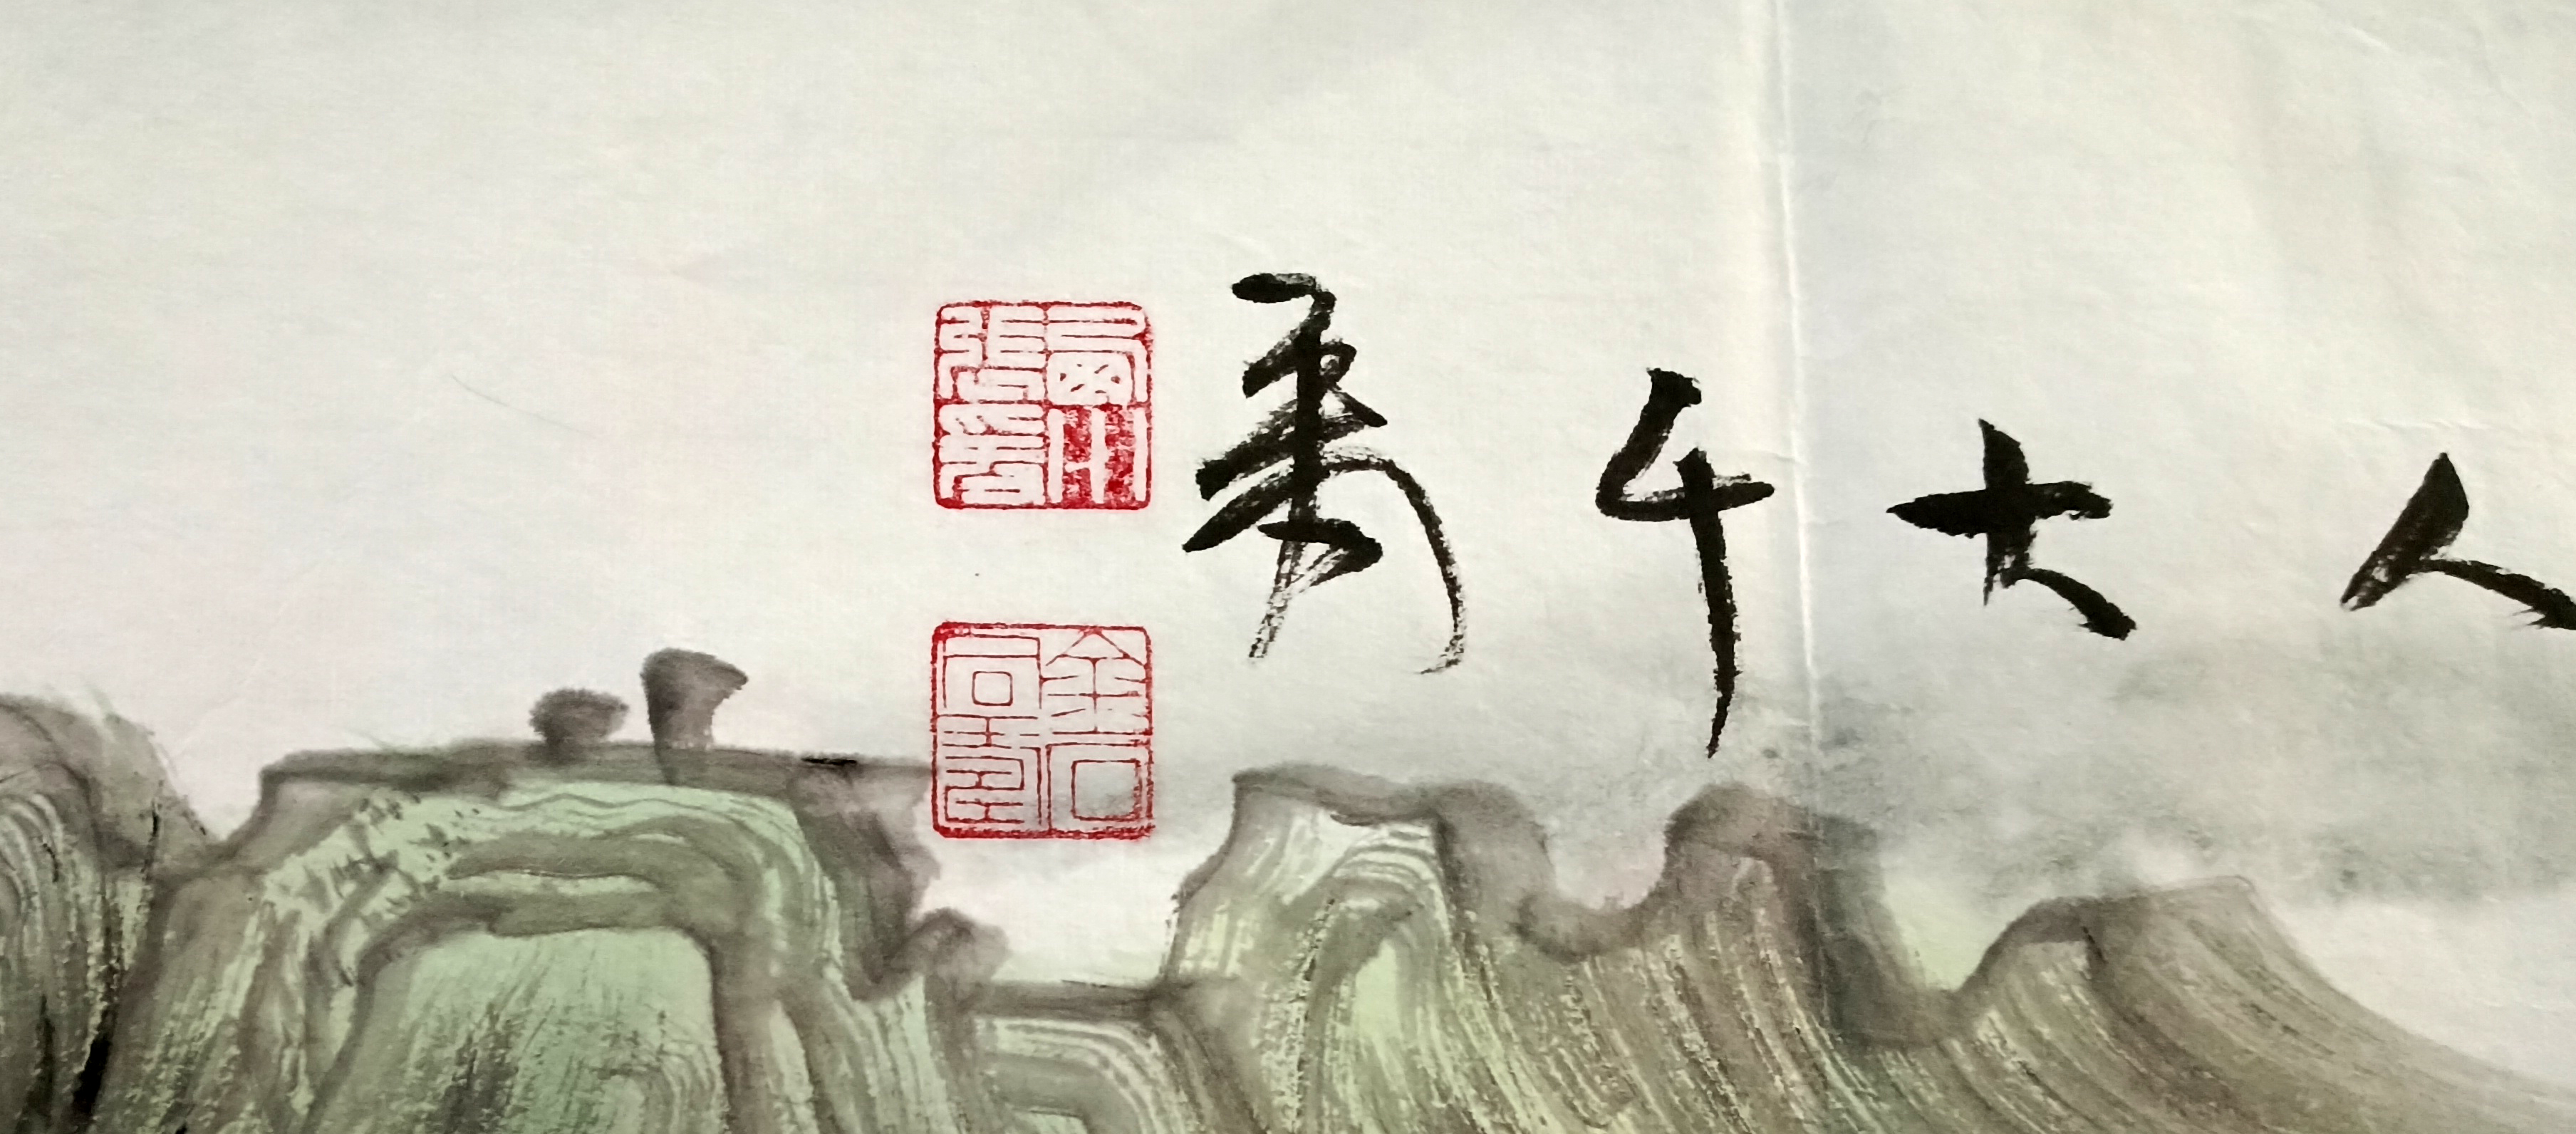 人大千爰
川張爰
金石同壽